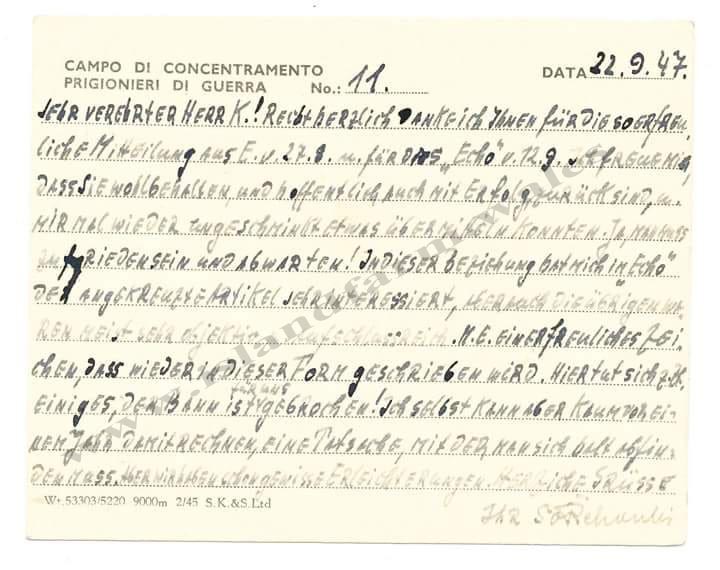 CAMPO DI CONCENTRAMENTO
PRIGIONIERI DI GUERRA No.: 11. DATA 22.9.47.
SEHR VEREHRTER HERR K.! RECHT HERZLICH DANKE ICH IHNEN FÜR DIE SO ERFREU-
LICHE MITTEILUNG AUS E. v. 27.8. u. FÜR DAS „ECHO" v. 12.9. ICH FREUE MICH,
DASS SIE WOHLBEHALTEN, UND HOFFENTLICH AUCH MIT ERFOLG ZURÜCK SIND, u.
MIR MAL WIEDER UNGESCHMINKT ETWAS ÜBERMITTELN KONNTEN. JA, MAN MUSS
ZUFRIEDEN SEIN UND ABWARTEN! IN DIESER BEZIEHUNG HAT MICH IN „ECHO"
DER ANGEKREUZTE ARTIKEL SEHR INTERESSIERT, ABER AUCH DIE ÜBRIGEN WA-
REN MEIST SEHR OBJEKTIV AUFSCHLUSSREICH. M.E. EIN ERFREULICHES ZEI-
CHEN, DASS WIEDER IN DIESER FORM GESCHRIEBEN WIRD. HIER TUT SICH z.Zt.
EINIGES, DER BANN IST GEBROCHEN! ICH SELBST KANN ABER KAUM VOR EI-
NEM JAHR DAMIT RECHNEN, EINE TATSACHE, MIT DER MAN SICH HALT ABFIN-
DEN MUSS. ABER WIR HABEN SCHON GEWISSE ERLEICHTERUNGEN. HERZLICHE GRÜSSE
Wt. 53303/5220 9000m 2/45 S.K.&S.Ltd
IHR
www.islandfarm.wales